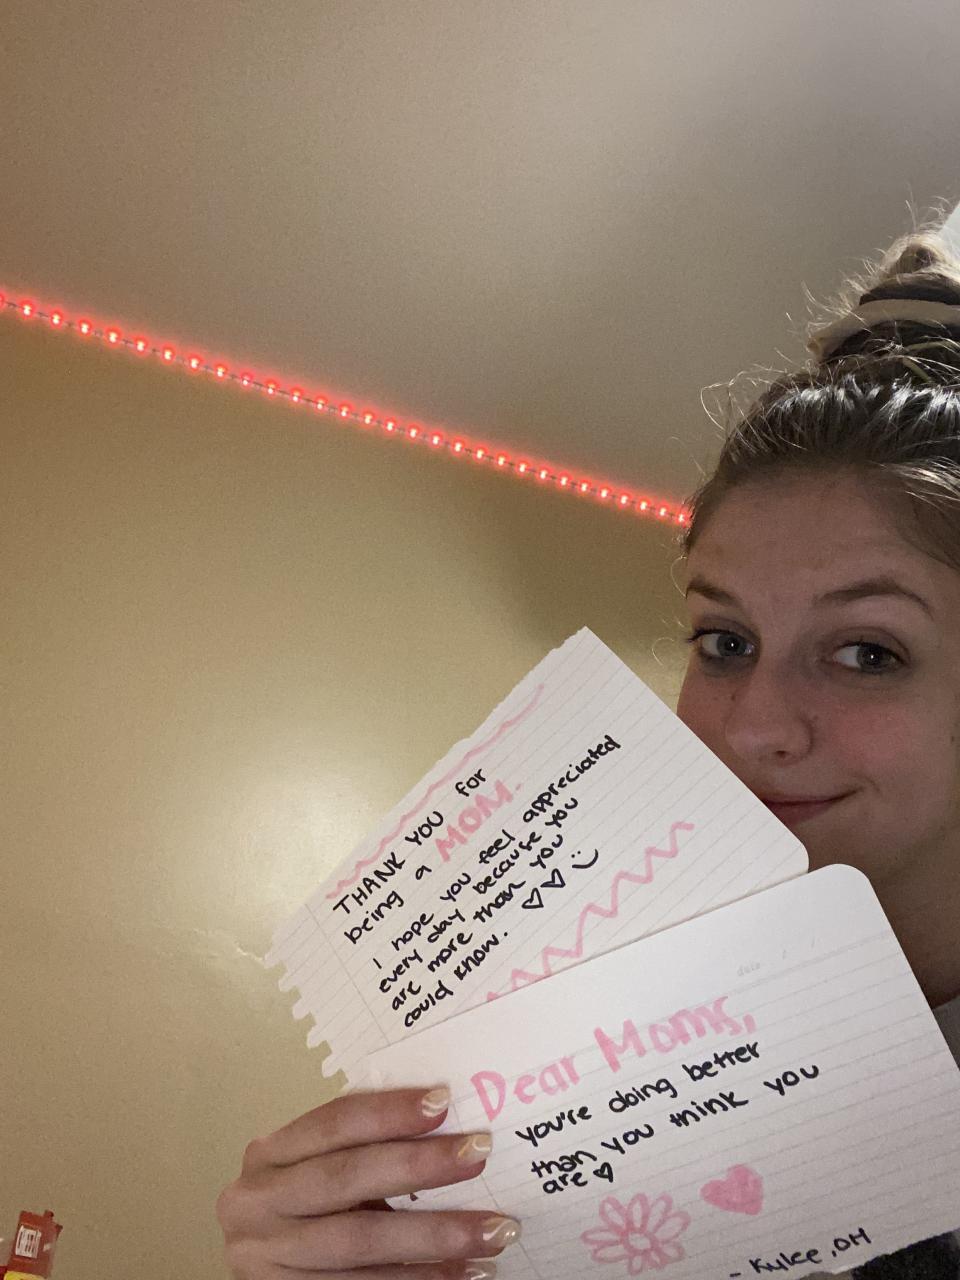 THANK YOU for
being a MOM.
I hope you feel appreciated
every day because you
are more than you
could know. ♡♡ :)
date / /
Dear Moms,
you're doing better
than you think you
are ♡
- Kylee, OH